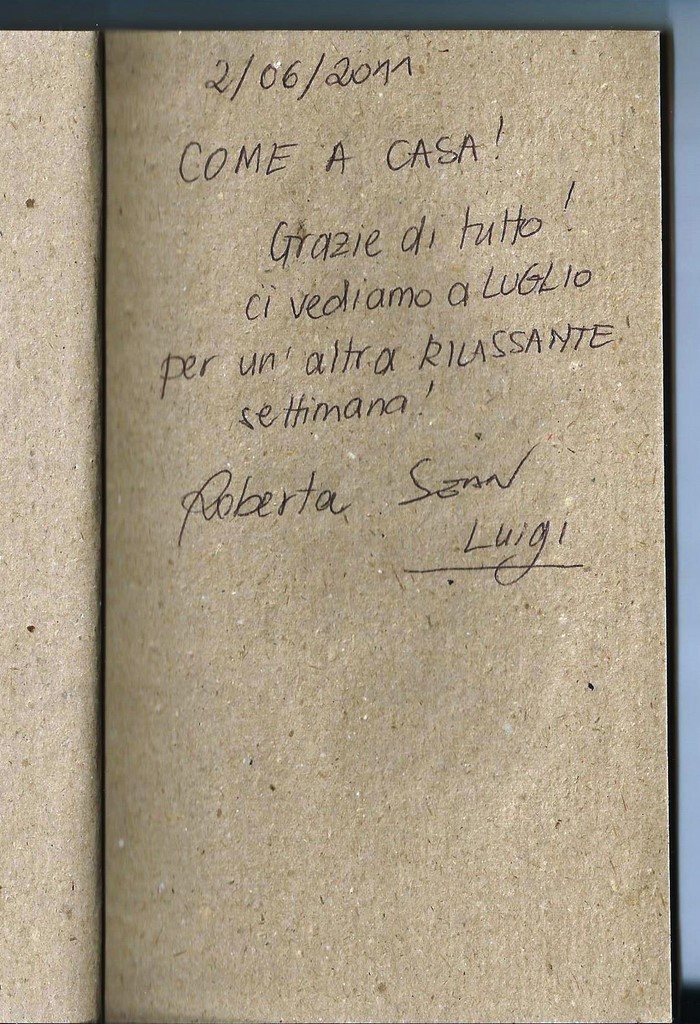 2/06/2011
COME A CASA!
Grazie di tutto!
ci vediamo a LUGLIO
per un' altra RILASSANTE
settimana!
Roberta
Luigi